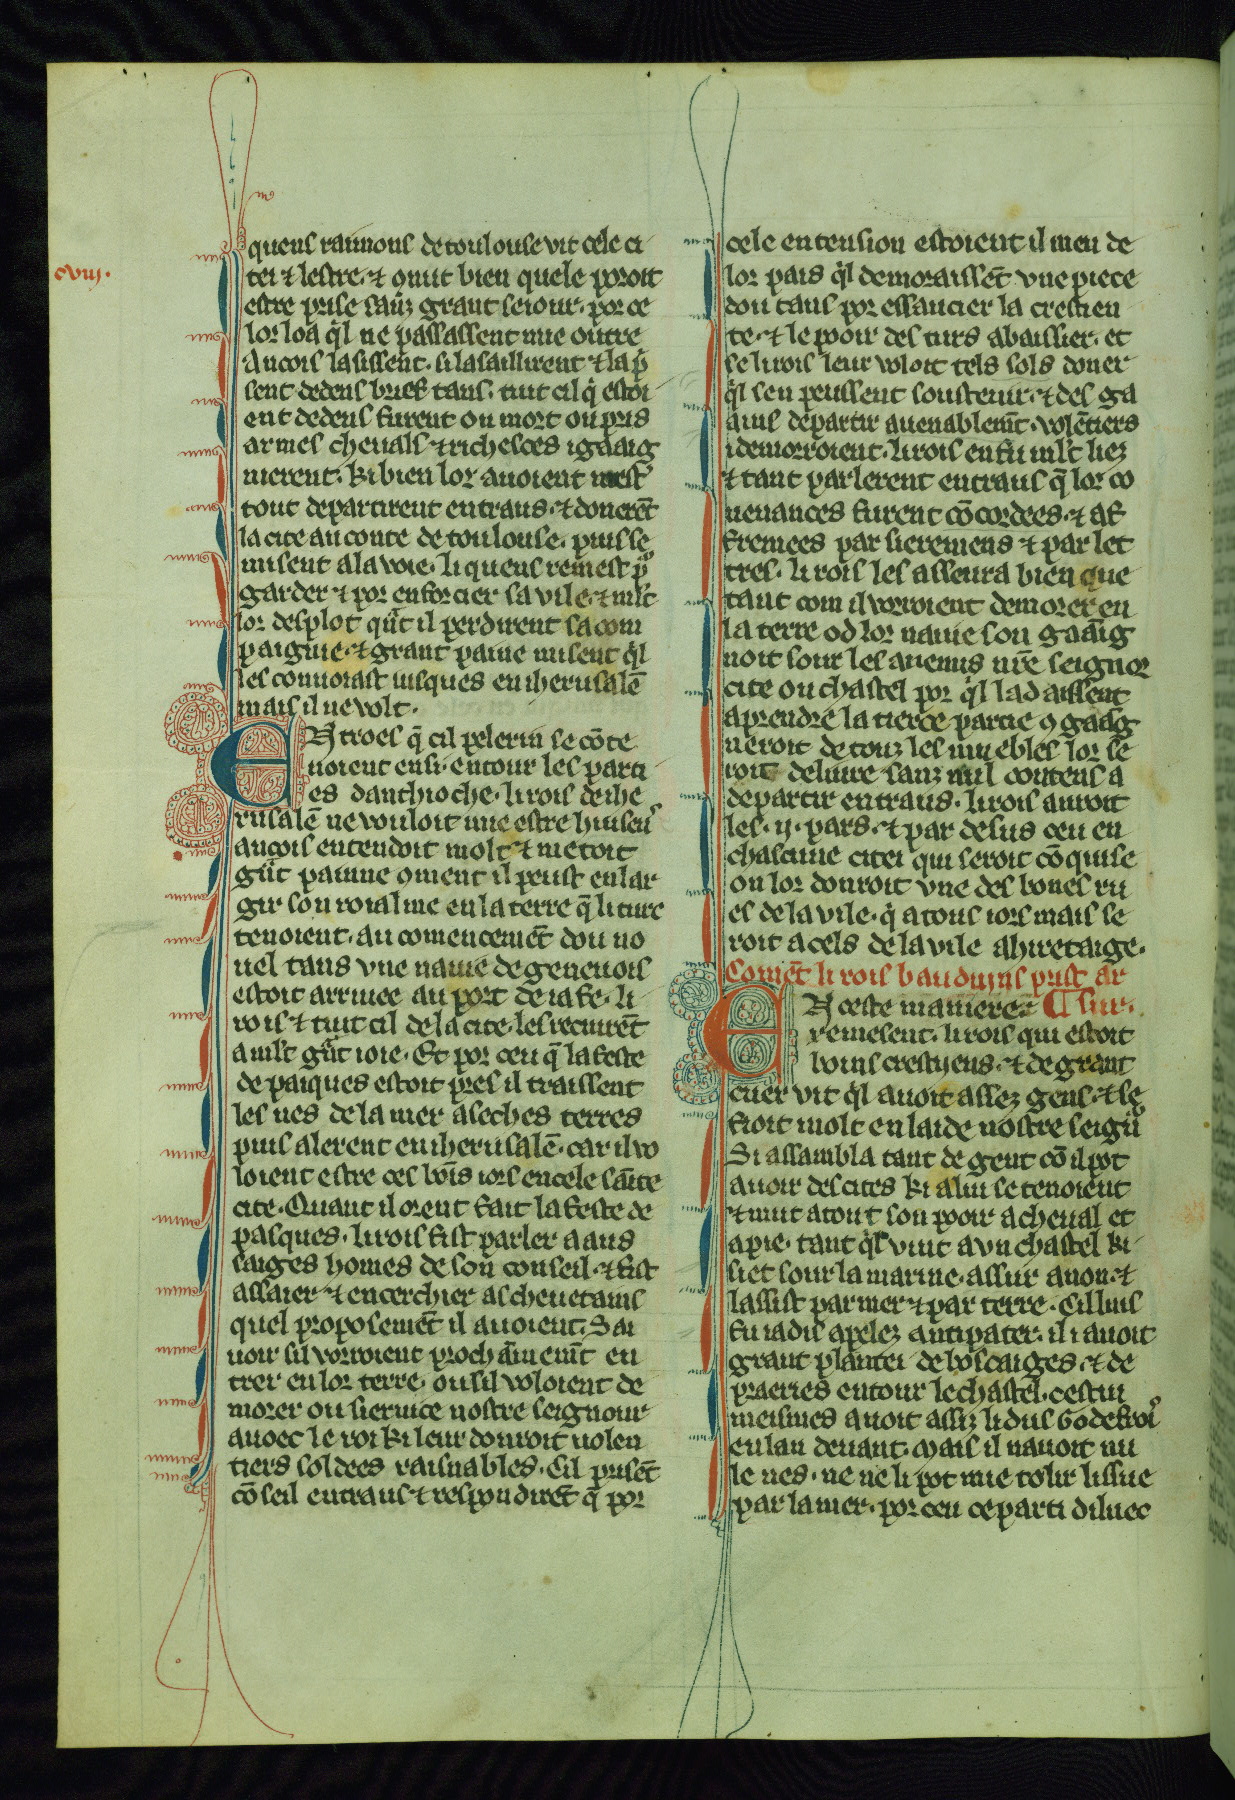 cviij.
quens raimons de toulouse vit cele ci
tei ⁊ lestre. ⁊ 9nut bien quele poroit
estre prise sanz grant seiour. por ce
lor loa q̍l ne passassent mie outre
Ancois lasissent. si lasaillirent ⁊ la p̍
sent dedens brief tans. tuit cil q̍ estoi
ent dedens furent ou mort ou pris
armes chevals ⁊ richesces i gaaig
nierent. ki bien lor avoient mest̓
tout departirent entraus. ⁊ donerēt
la cite au conte de toulouse. puis se
misent a la voie. li quens remest p̄
garder ⁊ por enforcier sa vile. ⁊ ml̓t
lor desplot qāt il perdirent sa com
paignie. ⁊ grant paine misent q̍l
les convoiast iusques en iherusalē
mais il ne volt.
EN troes q̄ cil pelerin se cōte
noient ensi. entour les parti
es danthioche. li rois de ihe
rusalē ne vouloit mie estre huiseus
ancois entendoit molt ⁊ metoit
gāt painne 9ment il peust enlar
gir son roialme en la terre q̄ li turc
tenoient. au comencemēt dou no
vel tans vne navie de genevois
estoit arrivee au port de iafe. li
rois ⁊ tuit cil de la cite. les recurēt
a ml̓t gāt ioie. Et por ceu q̄ la feste
de paiques estoit pres il traissent
les nes de la mer a seches terres
puis alerent en iherusalē. car il vo
loient estre ces bōs iors en cele sāte
cite. Quant il orent fait la feste de
pasques. li rois fist parler a aus
saiges homes de son conseil. ⁊ fist
assaier ⁊ encerchier as chevetains
quel proposemēt il avoient. Sa
voir sil vorroient prochāinemt en
trer en lor terre. ou sil voloient de
morer ou siervice nostre seignour
avoec le roi ki leur donroit volen
tiers soldees raisnables. Cil prisēt
cōseil entraus ⁊ respondirēt q̄ por
cele entension estoient il meu de
lor pais q̍l demoraissēt vne piece
dou tans por essaucier la crestien
te. ⁊ le pooir des turs abaissier. et
se li rois leur voloit tels sols doner
q̍l sen peussent soustenir. ⁊ des ga
ains departir avenablemt. volētiers
i demorroient. li rois en fu ml̓t liez
⁊ tant parlerent entraus q̄ lor co
venances furent cōcordees. ⁊ af
fremees par sieremens ⁊ par let
tres. li rois les asseura bien que
tant com il vorroient demorer en
la terre od lor navie son gaāig
noit sour les anemis nr̄e seignor
cite ou chastel por q̍l lad aissent
a prendre la tierce partie 9 gaāg
neroit de touz les muebles lor se
roit delivre sanz nul contens a
departir entraus. li rois auroit
les .ij. pars. ⁊ par desus ceu en
chascune citei qui seroit cōquise
on lor donroit vne des bones ru
es de la vile. q̍ a tous iors mais se
roit a cels de la vile ahiretaige.
Comēt li rois bauduins prist ar
EN ceste maniere ⁊ ¶ sur.
remesent. li rois qui estoit
boins crestijens. ⁊ de grant
cuer vit q̍l avoit assez gens. ⁊ se
fioit molt en laide nostre seign̄
Si assambla tant de gent cō il pot
avoir des cites ki a lui se tenoient
⁊ muit a tout son pooir a cheval et
a pie. tant q̍l vint a vn chastel ki
siet sour la marine. assur a non. ⁊
lassist par mer ⁊ par terre. Cil luis
fu iadis apelez antipater. il i avoit
grant plantei de boscaiges. ⁊ de
praeries entour le chastel. cestui
meismes avoit assiz li dus Godefrois
en lan devant. Mais il navoit nu
le nes. ne ne li pot mie tolir lissue
par la mer. por ceu ce parti diluec